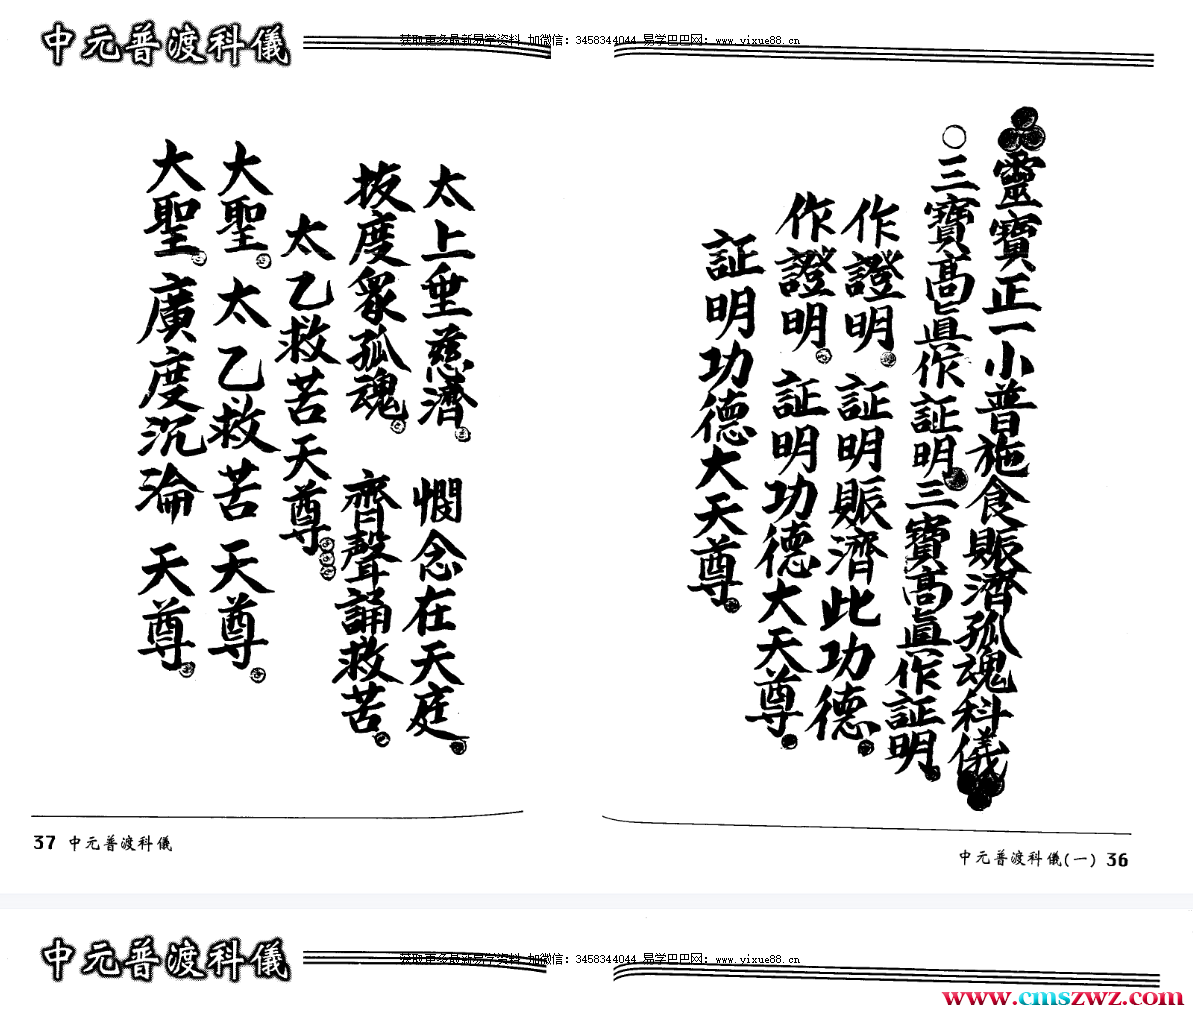 中元普渡科儀
获取更多最新易学资料 加微信: 3458344044 易学巴巴网: www.yixue88.cn
靈寶正一小普施食賑濟孤魂科儀
三寶高真作証明 三寶高眞作証明
作證明 証明賑濟此功德
作證明 証明功德大天尊
証明功德大天尊
中元普渡科儀(一) 36
太上垂慈濟 憫念在天庭
拔度眾孤魂 齊聲誦救苦
太乙救苦天尊
大聖 太乙救苦天尊
大聖 廣度沉淪天尊
37 中元普渡科儀
中元普渡科儀
获取更多最新易学资料 加微信: 3458344044 易学巴巴网: www.yixue88.cn
www.cmszwz.com